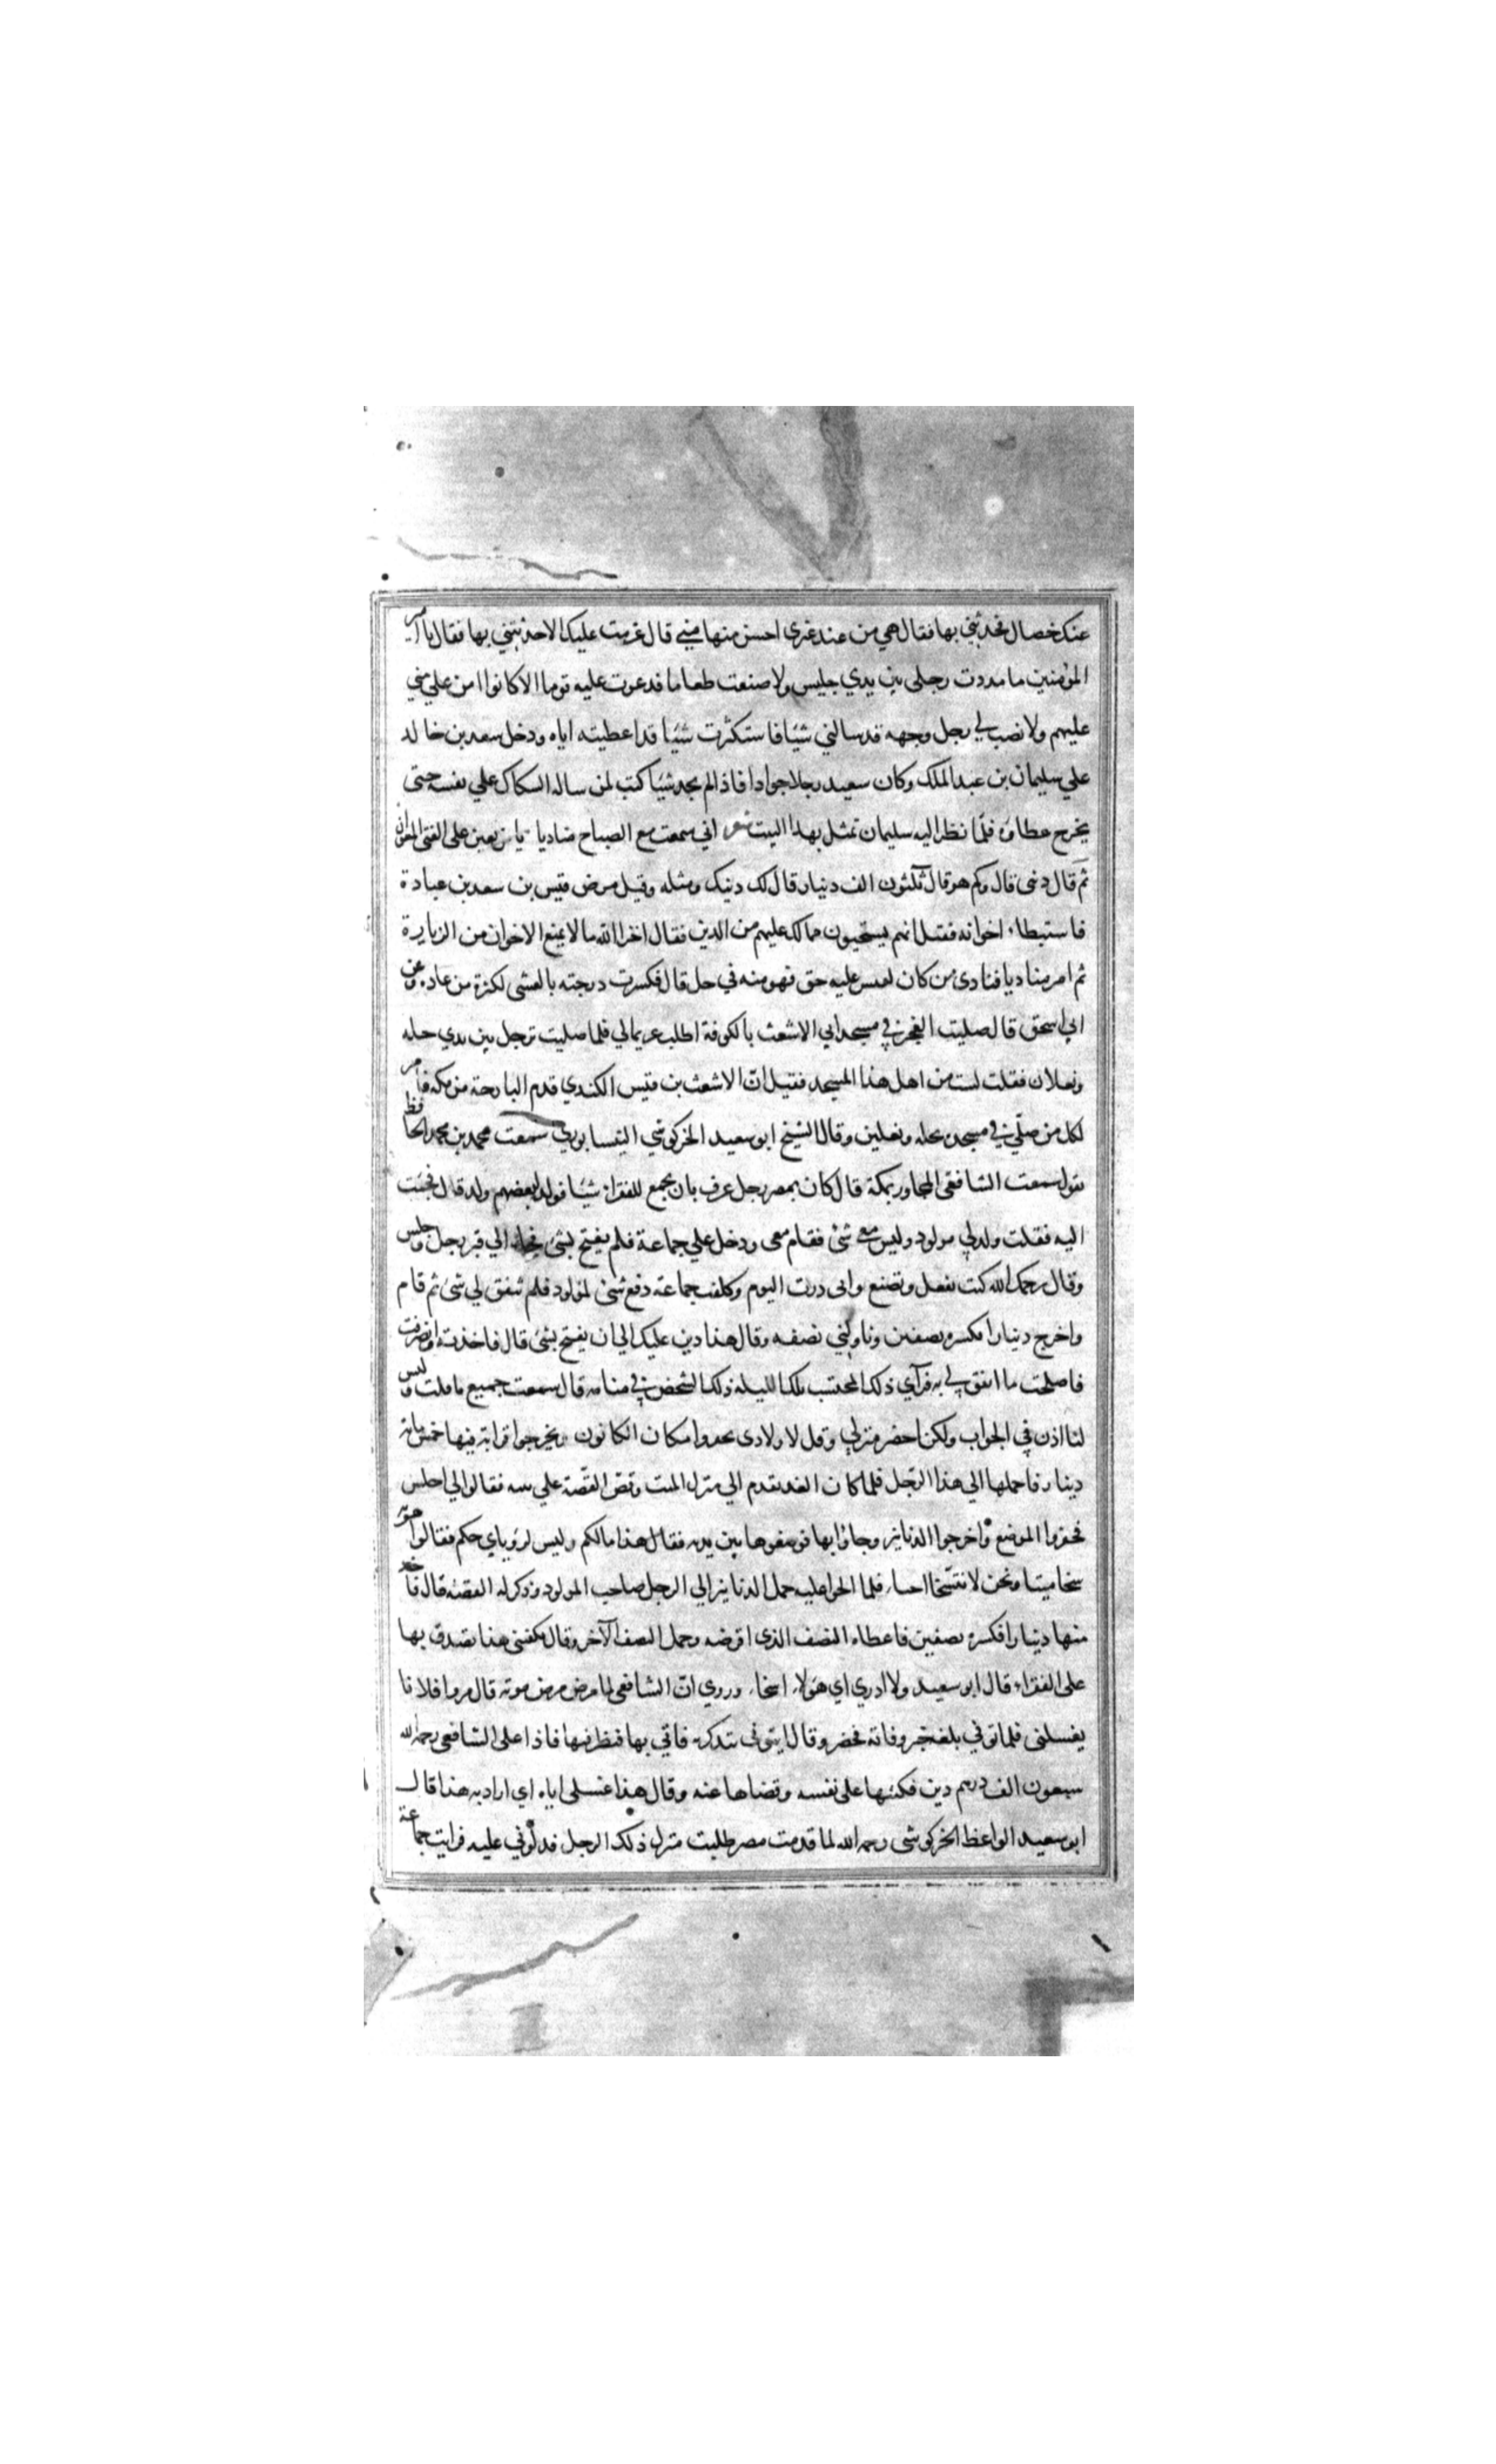 عنك خصال فحدثني بها فقال هي من عند غيري احسن منها مني قال عزمت عليك الا حدثتني بها فقال يا امير
المؤمنين ما مددت رجلي بين يدي جليس ولا صنعت طعاما فدعوت عليه قوما الا كانوا امن علي مني
عليهم ولا نصب لي رجل وجهه قد سالني شيئا فاستكثرت شيئا قد اعطيته اياه ودخل سعد بن خالد
علي سليمان بن عبد الملك وكان سعيد رجلا جوادا فاذا لم يجد شيئا كتب لمن ساله السكاك علي نفسه حتى
يخرج عطاؤه فلما نظر اليه سليمان تمثل بهذا البيت شعر اني سمعت مع الصباح مناديا يا من يعين على الفتى المعوان
ثم قال دنى قال وكم هو قال ثلثون الف دينار قال لك دينك ومثله وقيل مرض قيس بن سعد بن عبادة
فاستبطاء اخوانه فقيل انهم يستحيون مما لك عليهم من الدين فقال اخزا الله مالا يمنع الاخوان من الزيارة
ثم امر مناديا فنادى من كان لعيس عليه حق فهو منه في حل قال فكسرت درجته بالعشي لكثرة من عاده وعن
ابي اسحق قال صليت الفجر في مسجد ابي الاشعث بالكوفة اطلب عريما لي فلما صليت ترجل بين يدي حله
ونعلان فقلت لست من اهل هذا المسجد فقيل ان الاشعث بن قيس الكندي قدم البارحة من مكه فامر
لكل من صلي في مسجده بحله ونعلين وقال الشيخ ابو سعيد الخركوشي النيسابوري سمعت محمد بن محمد الحافظ
يقول سمعت الشافعي المجاور بمكة قال كان بمصر رجل عرف بان يجمع للفقرا شيئا فولد لبعضهم ولد قال فجئت
اليه فقلت ولد لي مولود وليس معي شئ فقام معي ودخل علي جماعة فلم يفتح بشئ فجاء الي قبر رجل وجلس
وقال رحمك الله كنت تفعل وتصنع واني درت اليوم وكلفت جماعة دفع شئ لمولود فلم تتفق لي شئ ثم قام
واخرج دينارا فكسره نصفين وناولني نصفه وقال هذا دين عليك الي ان يفتح بشئ قال فاخذته وانصرفت
فاصلحت ما اتفق لي به فرآي ذلك المحتسب تلك الليله ذلك الشخص في منامه قال سمعت جميع ما قلت وليس
لنا اذن في الجواب ولكن احضر منزلي وقل لاولادي يحفروا مكان الكانون ويخرجوا قرابة فيها خمس مائة
دينار فاحملها الي هذا الرجل فلما كان الغد تقدم الي منزل الميت وقص القصة علي بنيه فقالوا لي اجلس
فحفروا الموضع واخرجوا الدنانير وجاؤا بها فوضعوها بين يديه فقال هذا مالكم وليس لرؤياي حكم فقالوا هو
سخا ميتا ونحن لا نتسخا احياء فلما الحوا عليه حمل الدنانير الي الرجل صاحب المولود وذكر له القصة قال فاخذ
منها دينارا فكسره نصفين فاعطاه النصف الذي اقرضه وحمل النصف الآخر وقال يكفيني هذا تصدق بها
على الفقراء قال ابو سعيد ولا ادري اي هؤلاء اسخا وروي ان الشافعي لما مرض مرض موته قال مروا فلانا
يغسلني فلما توفي بلغه خبر وفاته فحضر وقال ايتوني بتذكرته فاتي بها فنظر فيها فاذا على الشافعي رحمه الله
سبعون الف درهم دين فكتبها على نفسه وقضاها عنه وقال هذا غسلي اياه اي اراد به هذا قال
ابو سعيد الواعظ الخركوشي رحمه الله لما قدمت مصر طلبت منزل ذلك الرجل فدلوني عليه فرايت جماعة